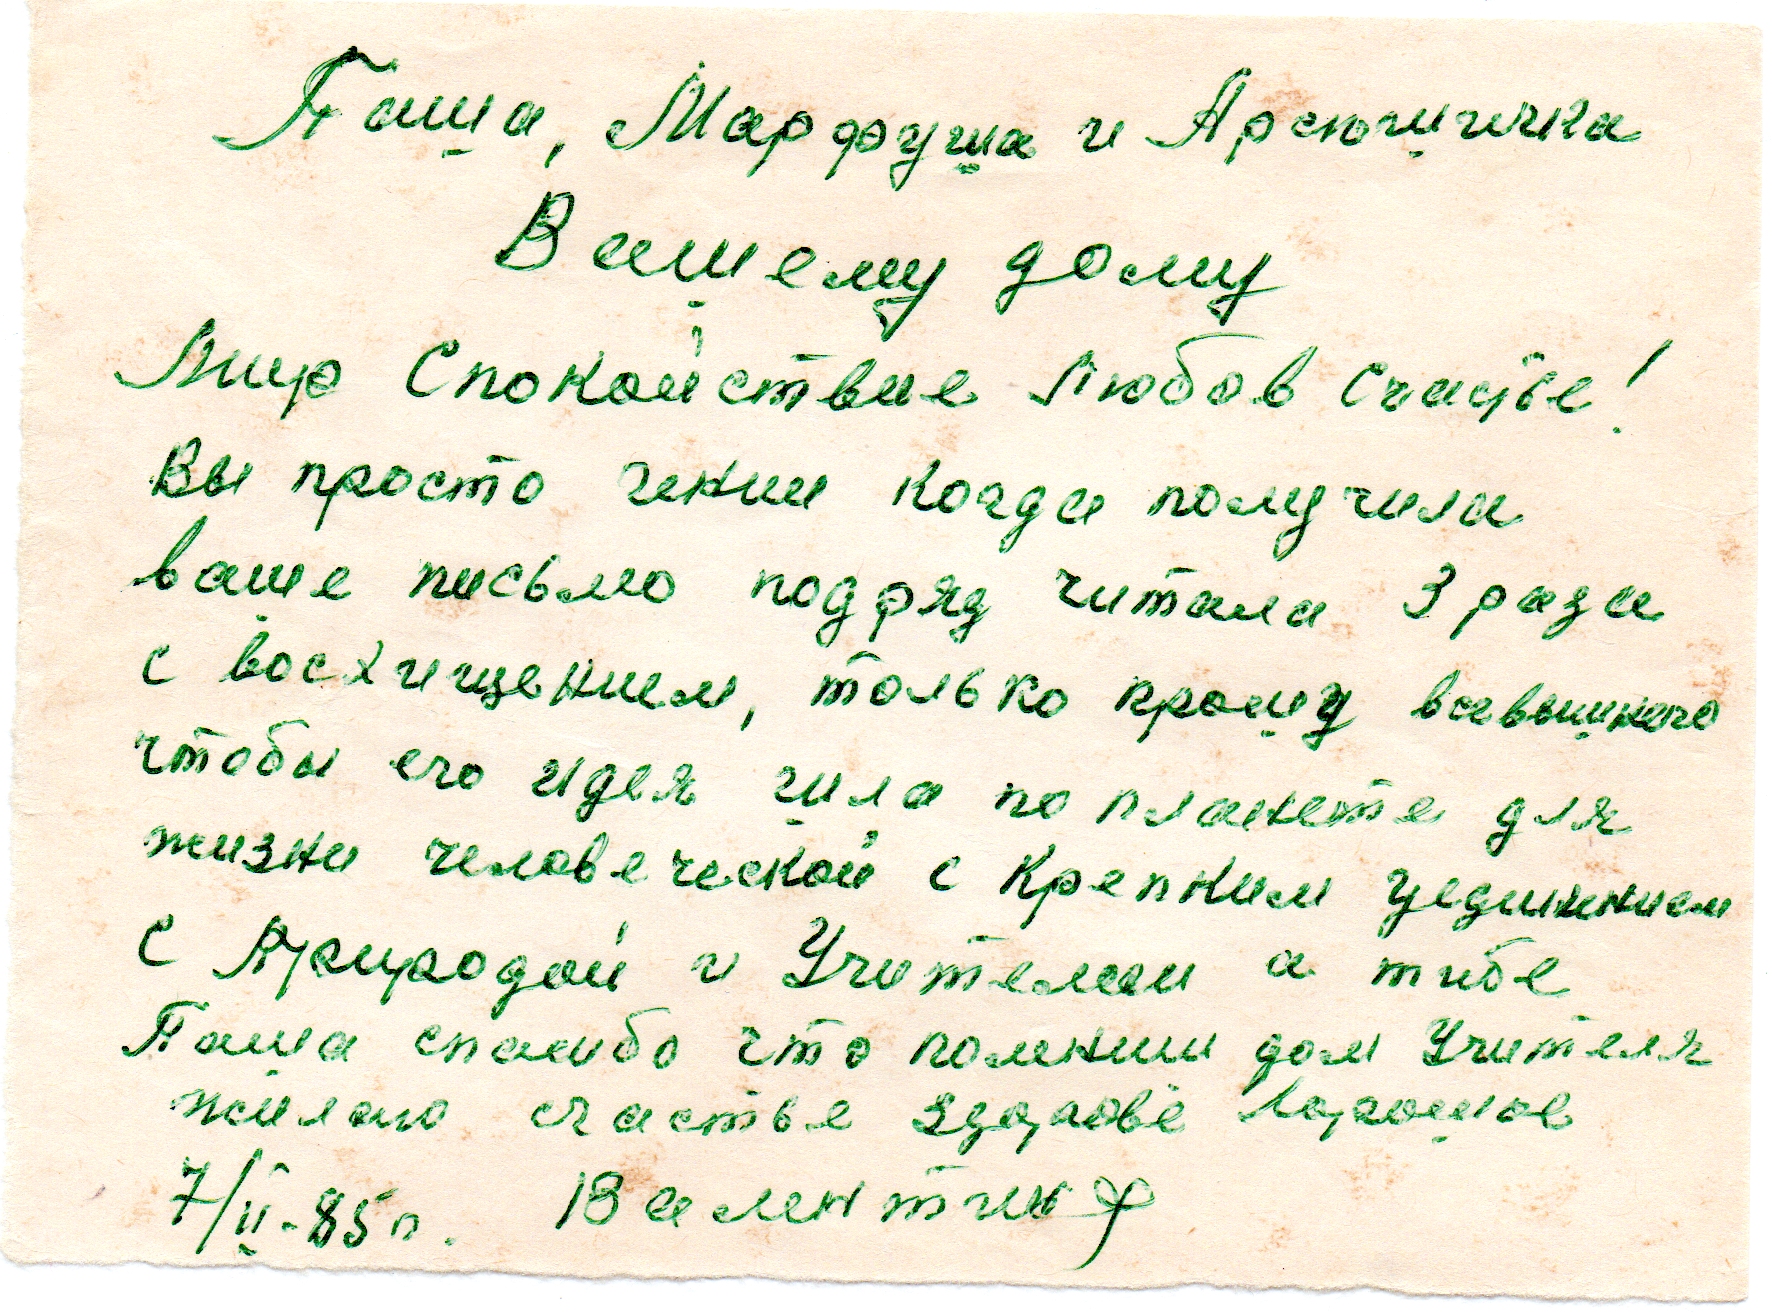 Паша, Марфуша и Арсюшичка
Вашему дому
Мир Спокойствие Любов Счастье!
Вы просто гении когда получила
ваше письмо подряд читала 3 раза
с восхищением, только прошу всевышнего
чтобы его идея шла по планете для
жизни человеческой с крепким уединением
С Природой и Учителем а тибе
Паша спасибо что помниш дом Учителя
жилаю счастье здоровье хорошое
7/II-85г. Валентина